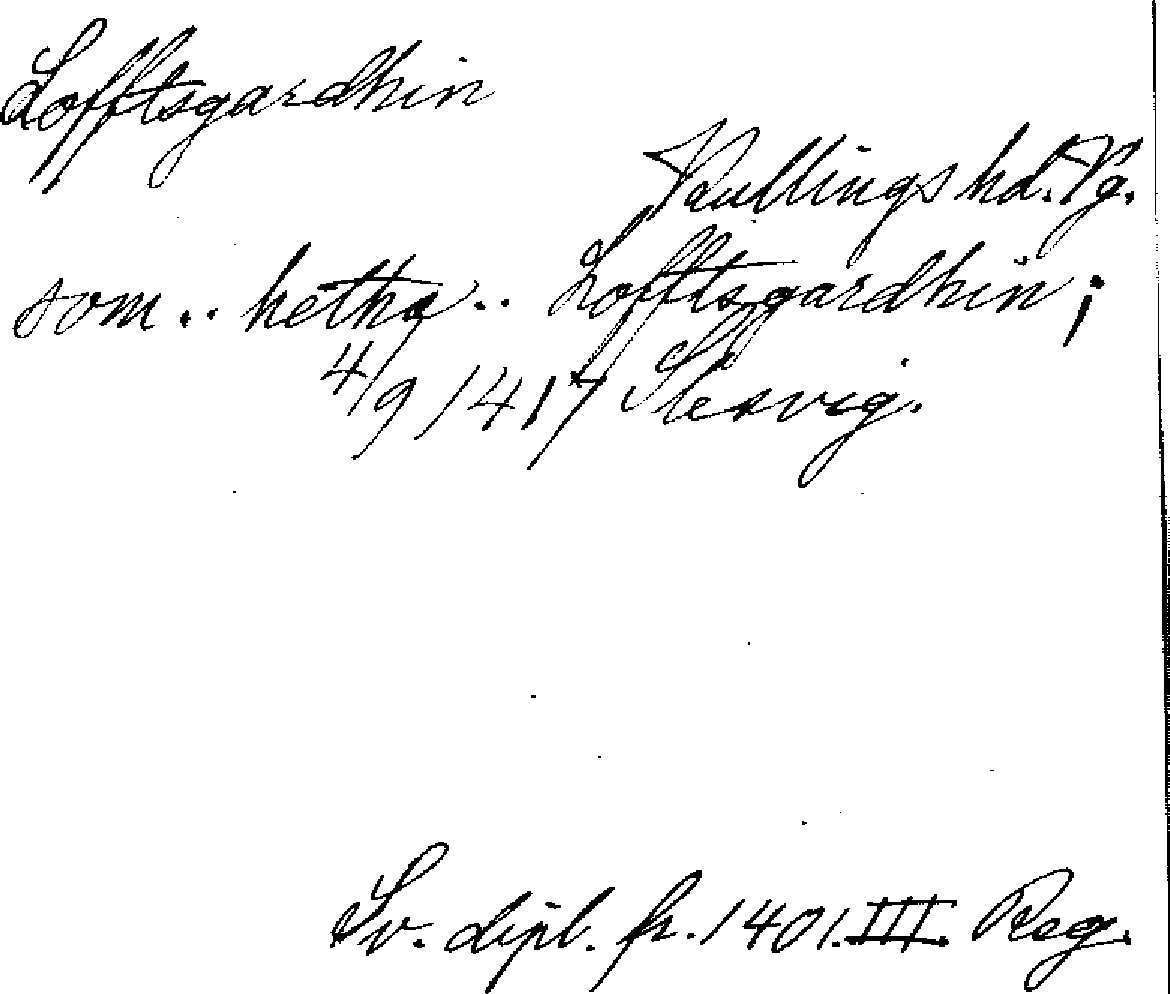 Lofftsgardhin
Kullings hd. Vg.
som .. hetha .. Lofftsgardhin;
4/9 1417 Slesvig.
Sv. dipl. fr. 1401. III. Reg.